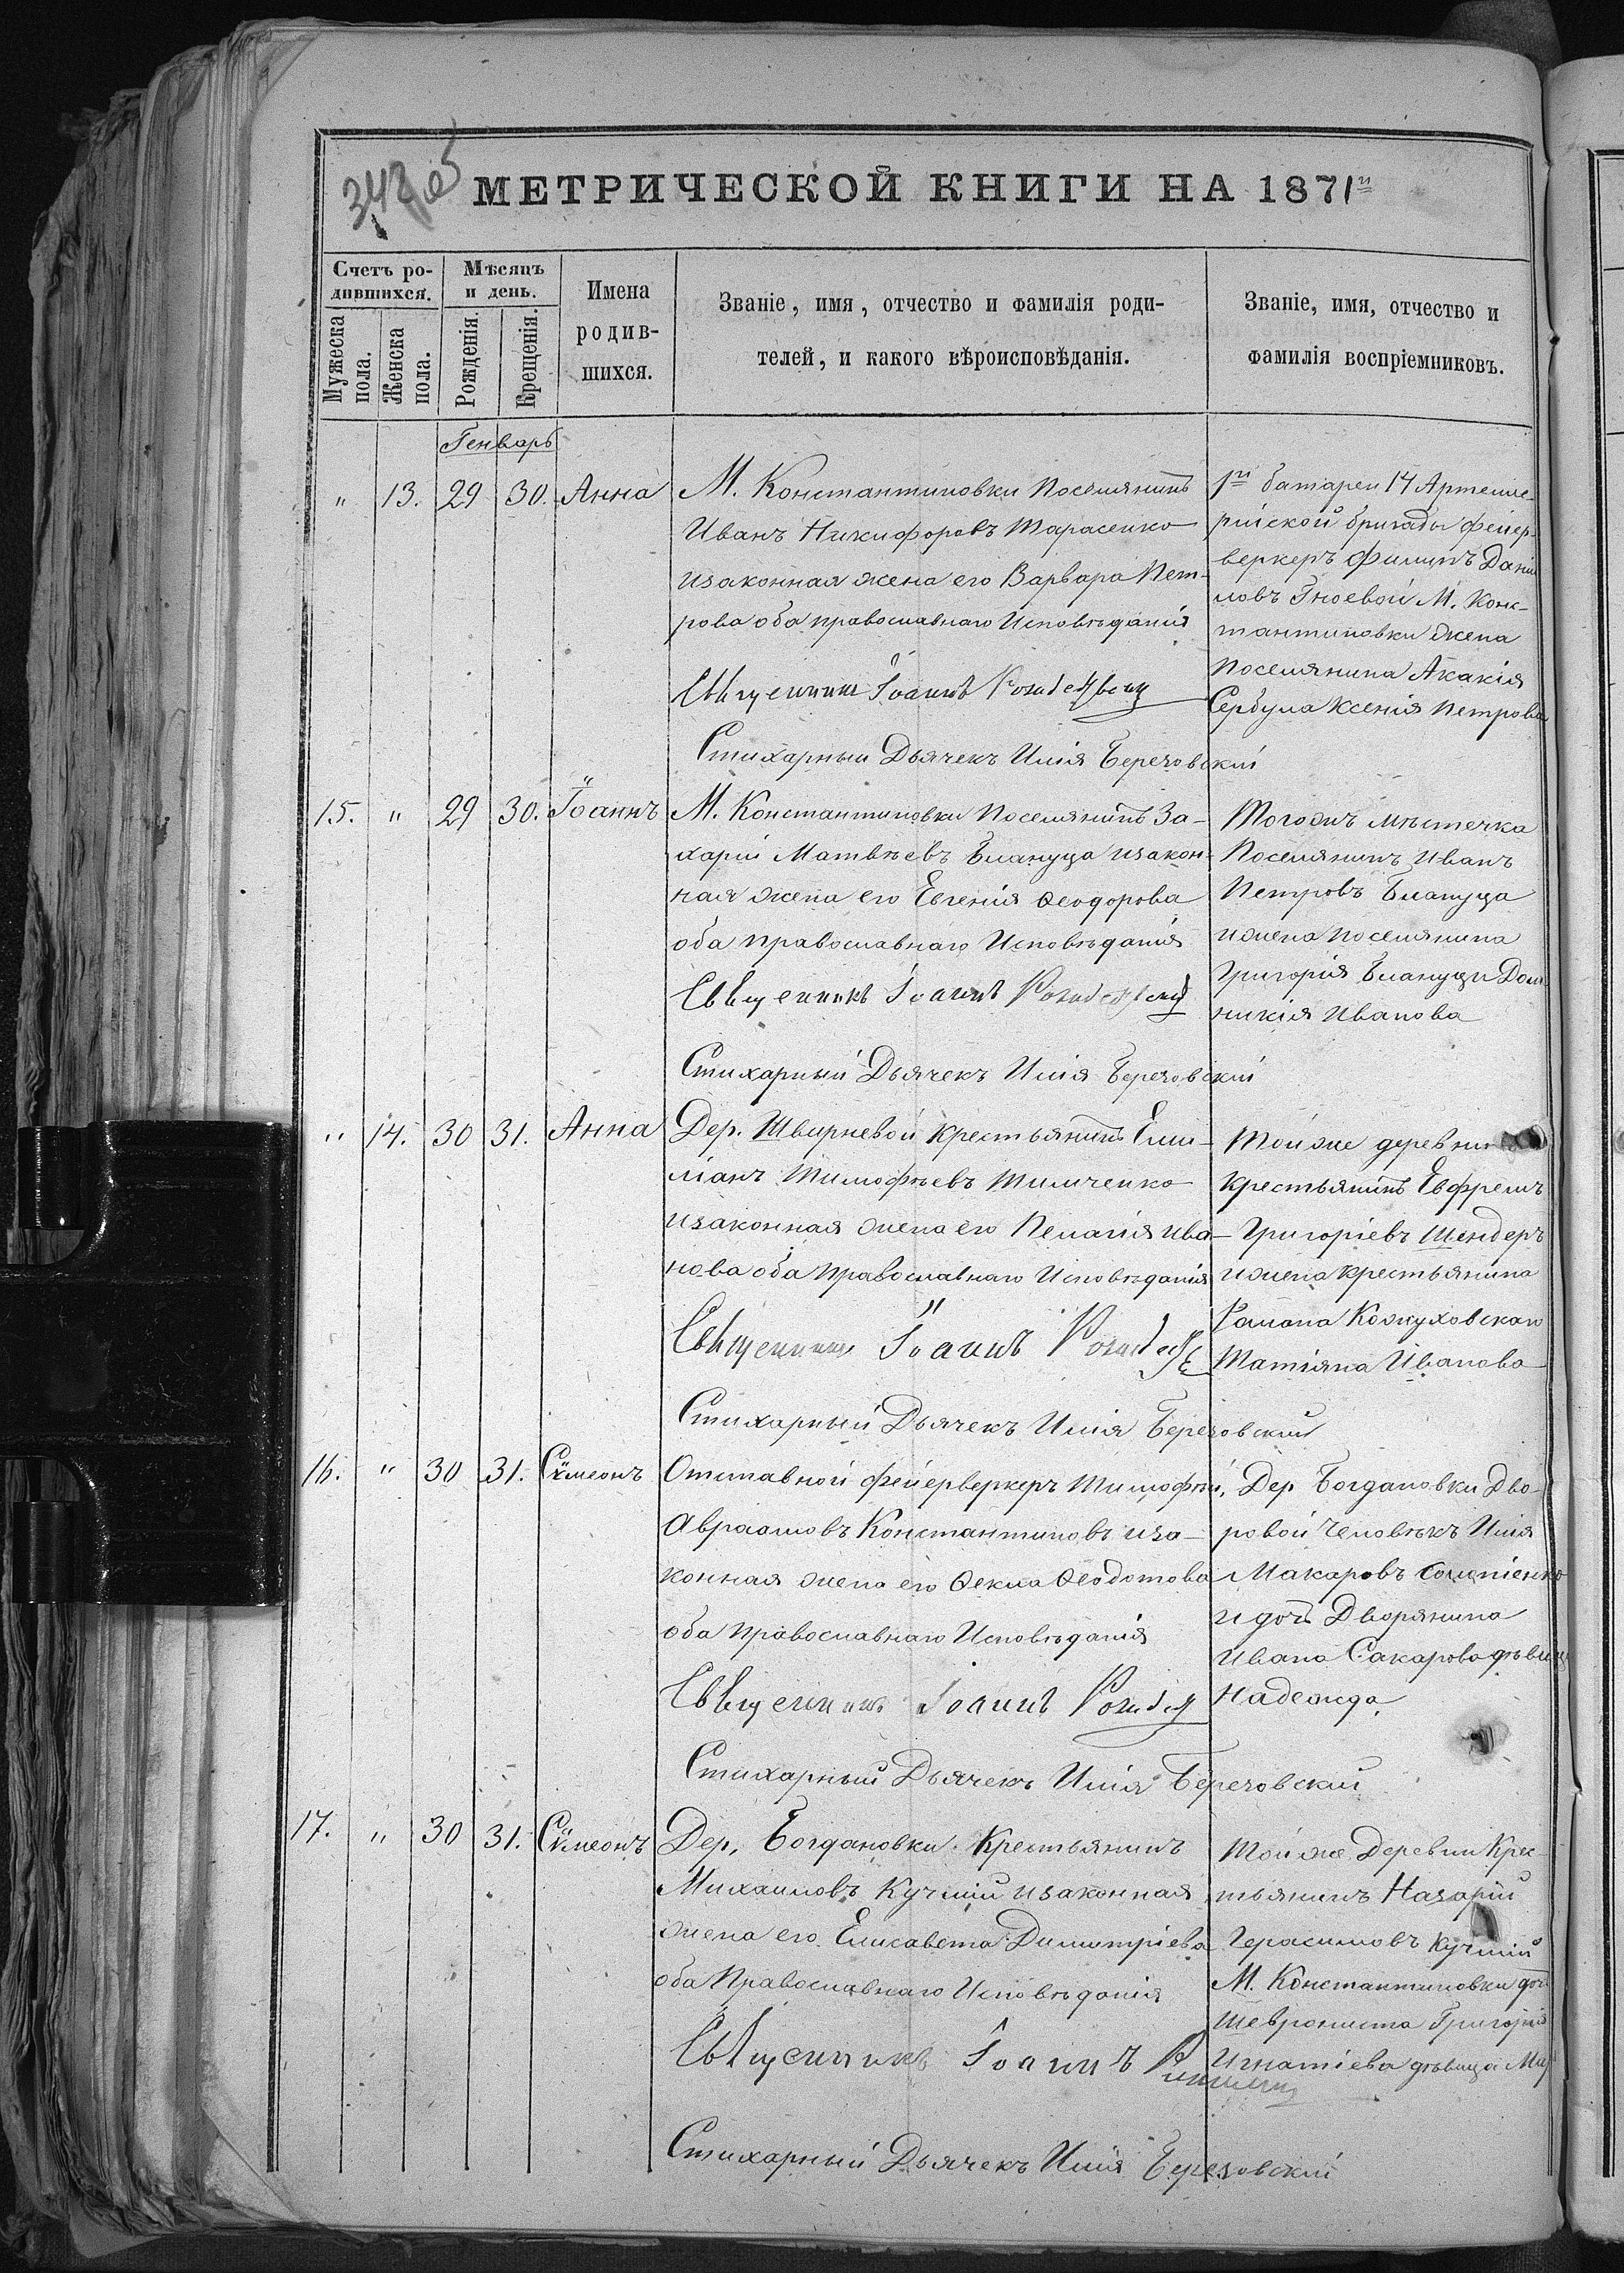 342 об
МЕТРИЧЕСКОЙ КНИГИ НА 1871й
Счетъ ро-
дившихся.
Мужеска
пола.
Женска
пола.
Мѣсяцъ
и день.
Рожденія.
Крещенія.
Имена
родив-
шихся.
Званіе, имя, отчество и фамилія роди-
телей, и какого вѣроисповѣданія.
Званіе, имя, отчество и
фамилія воспріемниковъ.
Генварь
" 13. 29 30. Анна
М. Константиновки Поселянинъ
Иванъ Никифоровъ Тарасенко
изаконная жена его Варвара Пет-
рова оба православнаго Исповѣданія
Священникъ Іоаннъ
Стихарный Дьячекъ Илія Березовскій
1й батареи 14 Артеле-
рійской бригады фейер-
веркеръ Филипъ Дани
ловъ Гноевой М. Конс-
тантиновки жена
Поселянина Акакія
Сербула Ксенія Петрова
15. " 29 30. Іоаннъ
М. Константиновки Поселянинъ За-
харій Матвѣевъ Блануца изакон-
ная жена его Евгенія Ѳеодорова
оба православнаго Исповѣданія
Священникъ Іоаннъ
Стихарный Дьячекъ Илія Березовскій
Тогожъ мѣстечка
Поселянинъ Иванъ
Петровъ Блануца
ижена поселянина
Григорія Блануцы Дом
никія Иванова
" 14. 30 31. Анна
Дер. Швирневой Крестьянинъ Еми-
ліанъ Тимофѣевъ Тимченко
изаконная жена его Пелагія Ива-
нова оба Православнаго Исповѣданія
Священникъ Іоаннъ
Стихарный Дьячекъ Илія Березовскій
Тойже деревни
Крестьянинъ Евфремъ
Григоріевъ Шендеръ
ижена крестьянина
Романа Кожуховскаго
Татіяна Иванова
16. " 30 31. Сѵмеонъ
Отставной фейерверкеръ Тимофей
Авраамовъ Константиновъ иза-
конная жена его Ѳекла Ѳеодотова
оба Православнаго Исповѣданія
Священникъ Іоаннъ
Стихарный Дьячекъ Илія Березовскій
Дер Богдановки Дво-
ровой человѣкъ Илія
Макаровъ
и дочь Дворянина
Ивана Сакарова дѣвица
Надежда
17. " 30 31. Сѵмеонъ
Дер. Богдановки Крестьянинъ
Михаиловъ Кучмій изаконная
жена его Елисавета Димитріева
оба Православнаго Исповѣданія
Священникъ Іоаннъ
Стихарный Дьячекъ Илія Березовскій
Тойже Деревни Крес-
тьянинъ Назарій
Герасимовъ Кучмій
М. Константиновки дочь
Шеврониста Григорія
Игнатіева дѣвица